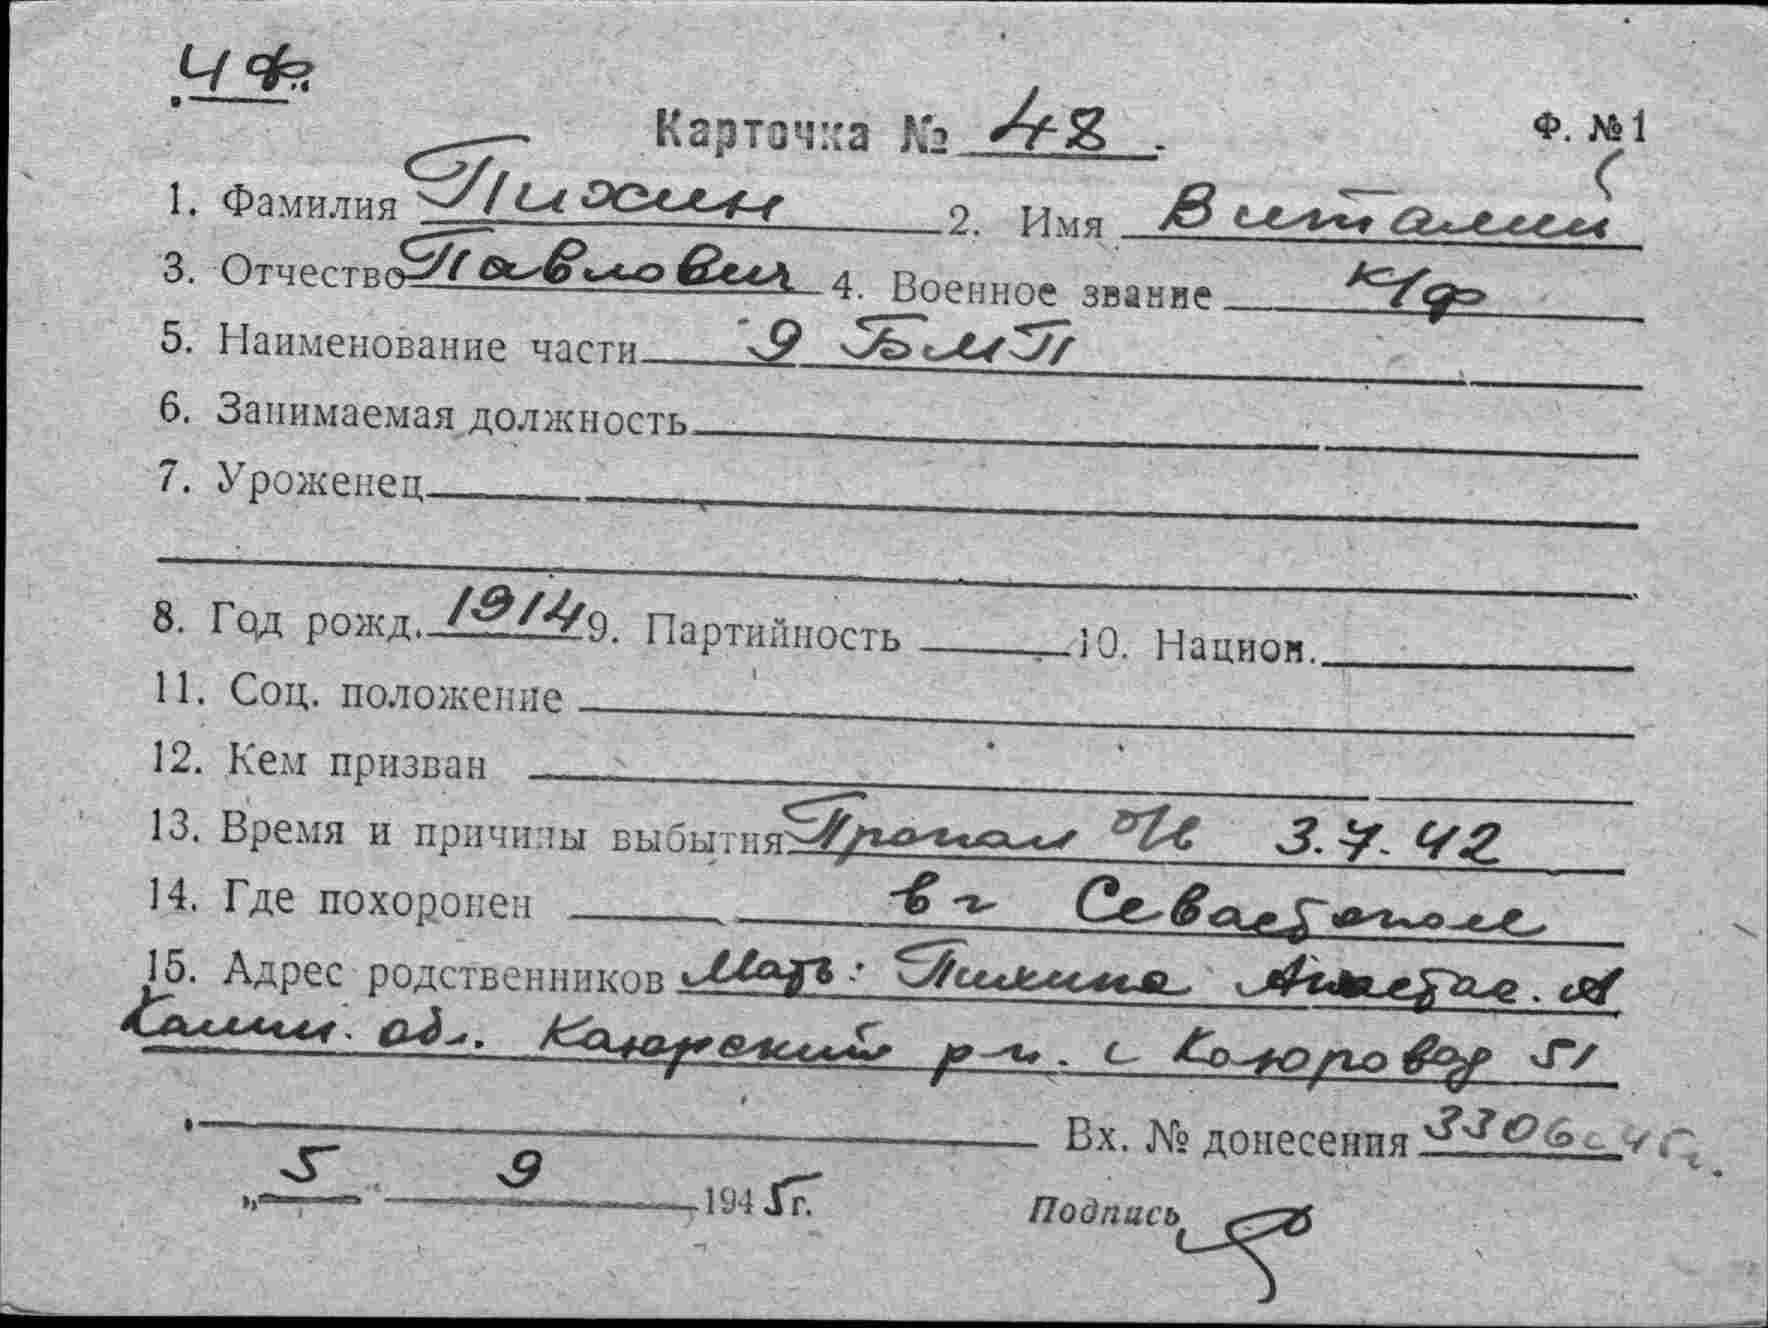 ЧФ
Карточка № 48.
Ф. №1
1. Фамилия Тихин 2. Имя Виталий
3. Отчество Павлович 4. Военное звание к/ф
5. Наименование части 9 БМП
6. Занимаемая должность
7. Уроженец
8. Год рожд. 1914 9. Партийность 10. Национ.
11. Соц. положение
12. Кем призван
13. Время и причины выбытия Пропал 3.7.42
14. Где похоронен в г Севастополе
15. Адрес родственников Мать: Тихина Анастас. А
Калин. обл. р-н. с 51
Вх. № донесения 3306с 45г.
„5“ 9 1945г. Подпись